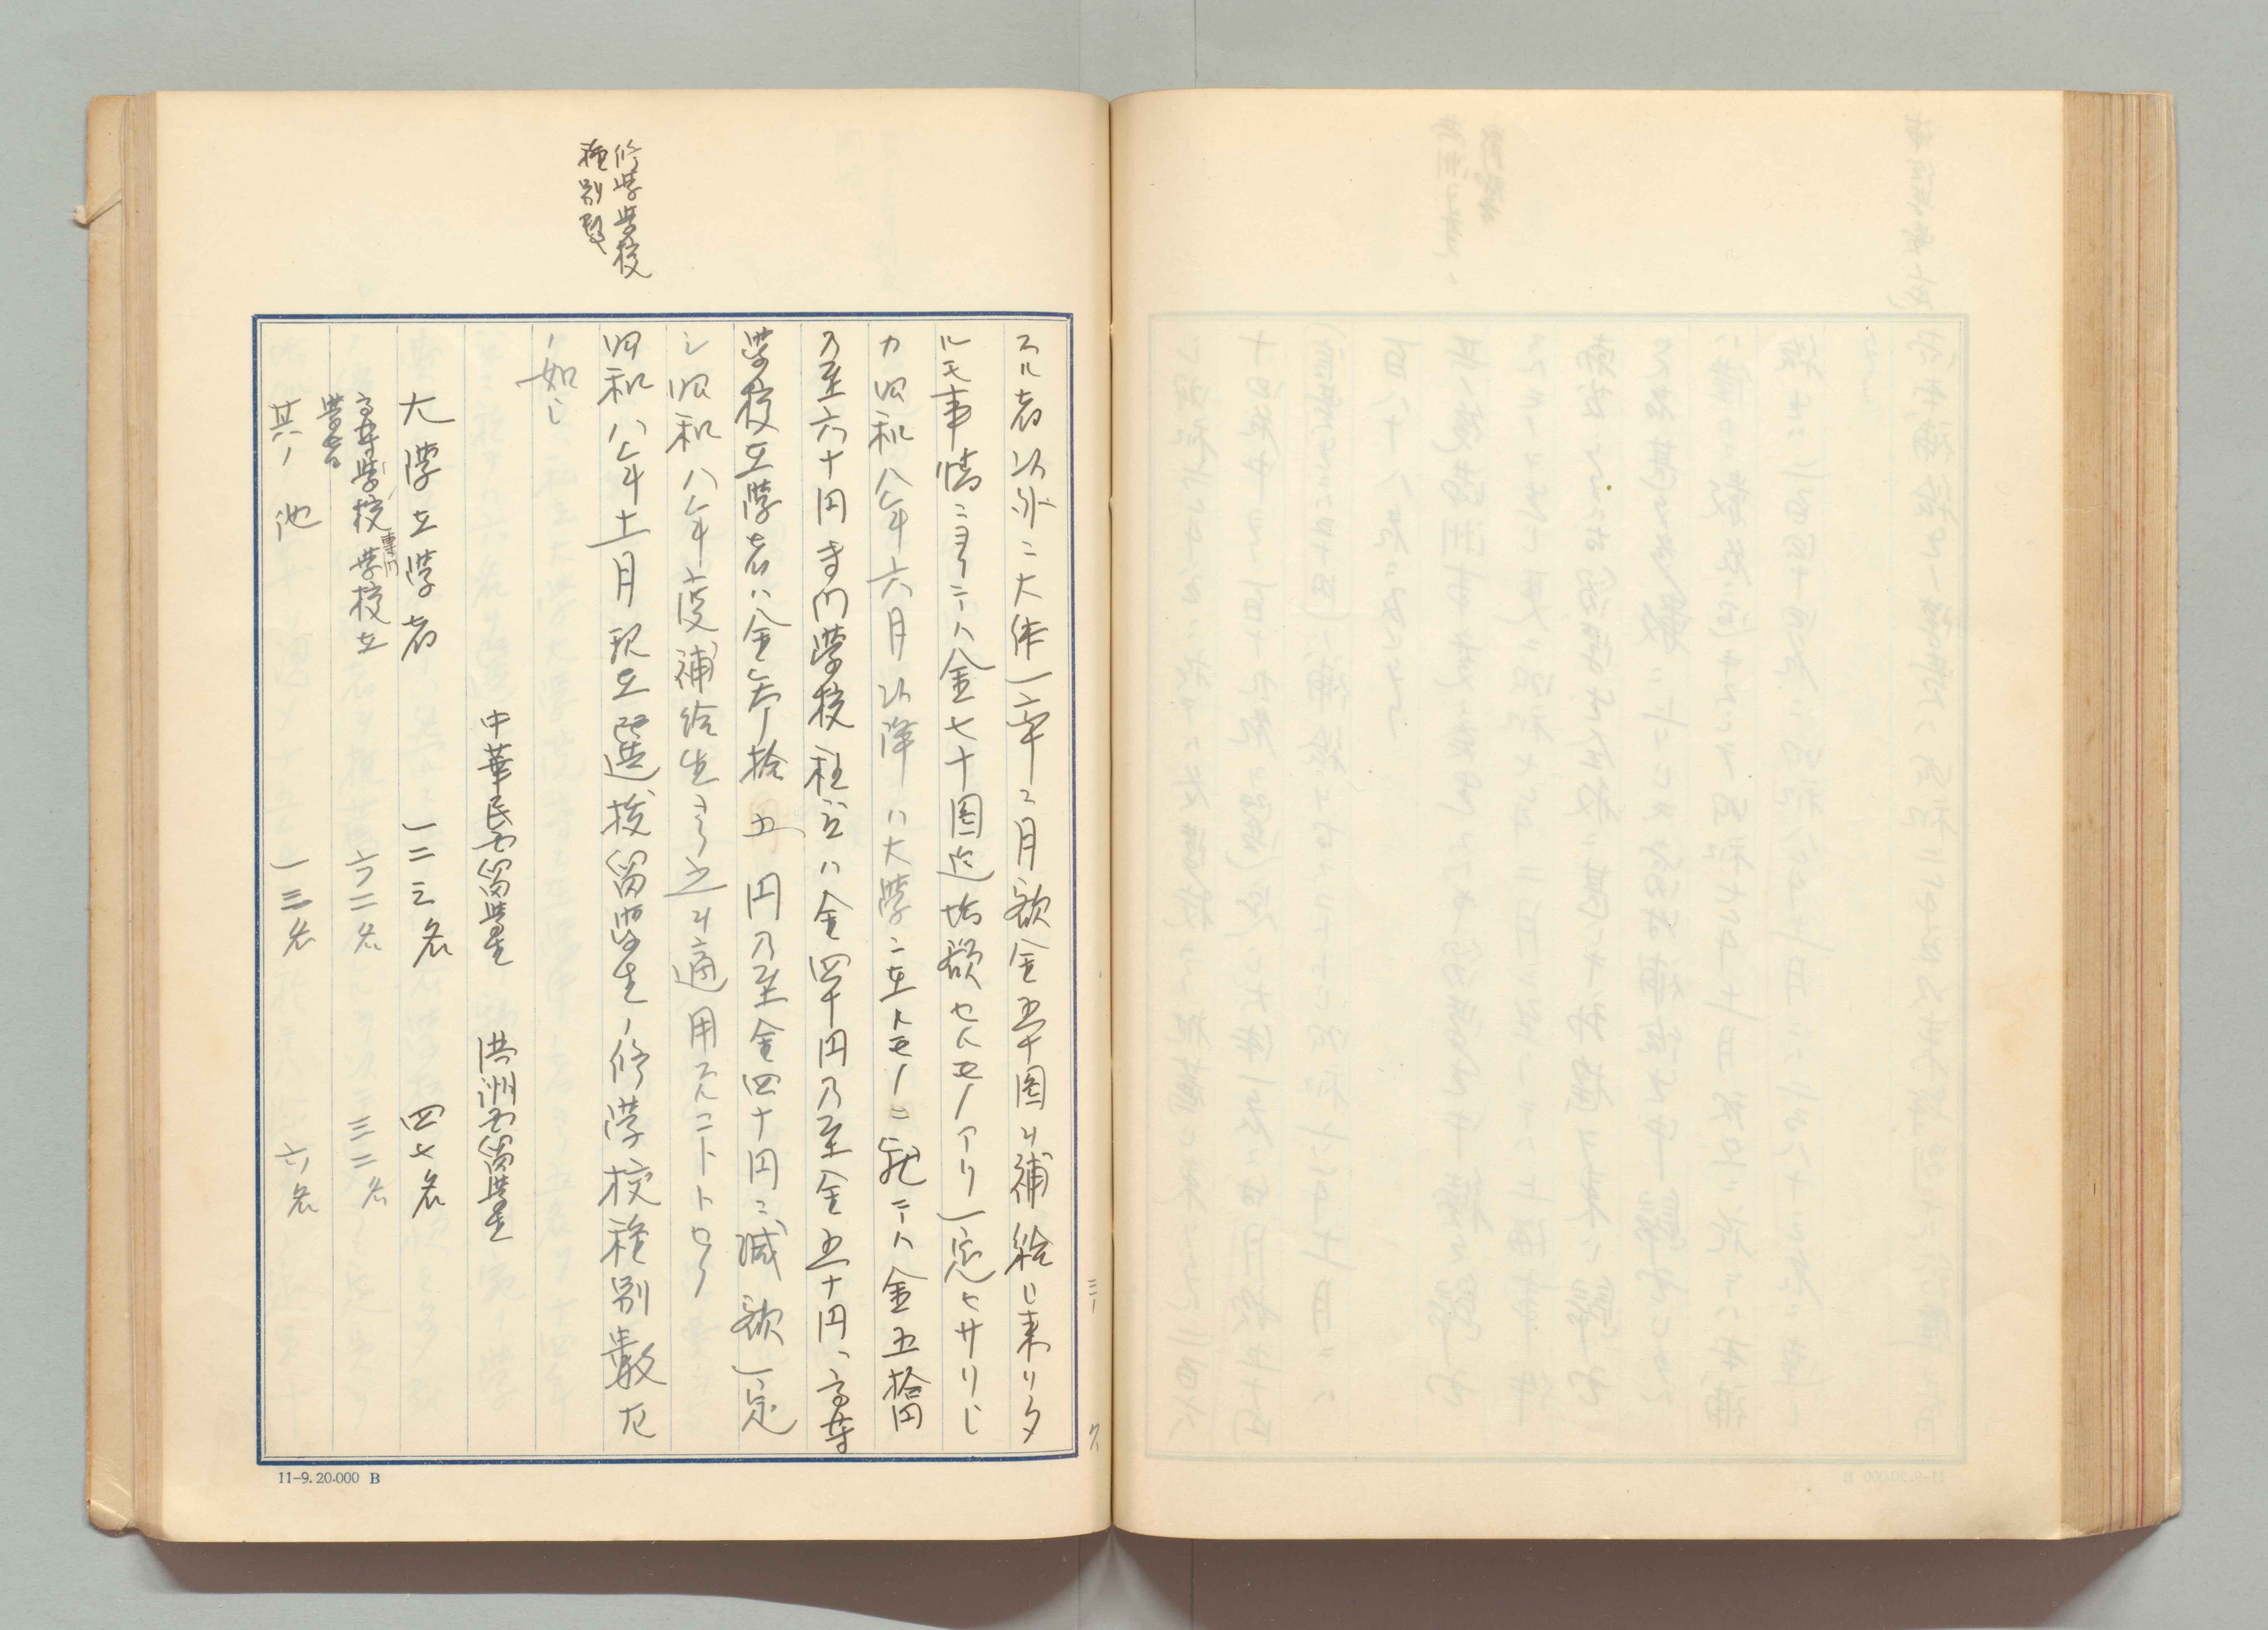 修学学校
種別数
スル者以外ニ大体一率ニ月額金五十圓ヲ補給シ来リタ
ルモ事情ニヨリテハ金七十圓迄増額セルモノアリ一定セサリシ
カ昭和八年六月以降ハ大学ニ在ルモノニ就テハ金五拾円
乃至六十円専門学校程度ハ金四十円乃至金五十円、高等
学校在学者ハ金参拾五円乃至金四十円ニ減額一定
シ昭和八年度補給生ヨリ之ヲ適用スルコトトセリ
昭和八年十二月現在選抜留学生ノ修学校種別数左
ノ如シ
中華民国留学生 満洲国留学生
大学在学者 一二三名 四七名
高等学校専門学校在
学者 六二名 三二名
其ノ他 一三名 六名
11-9. 20.000 B